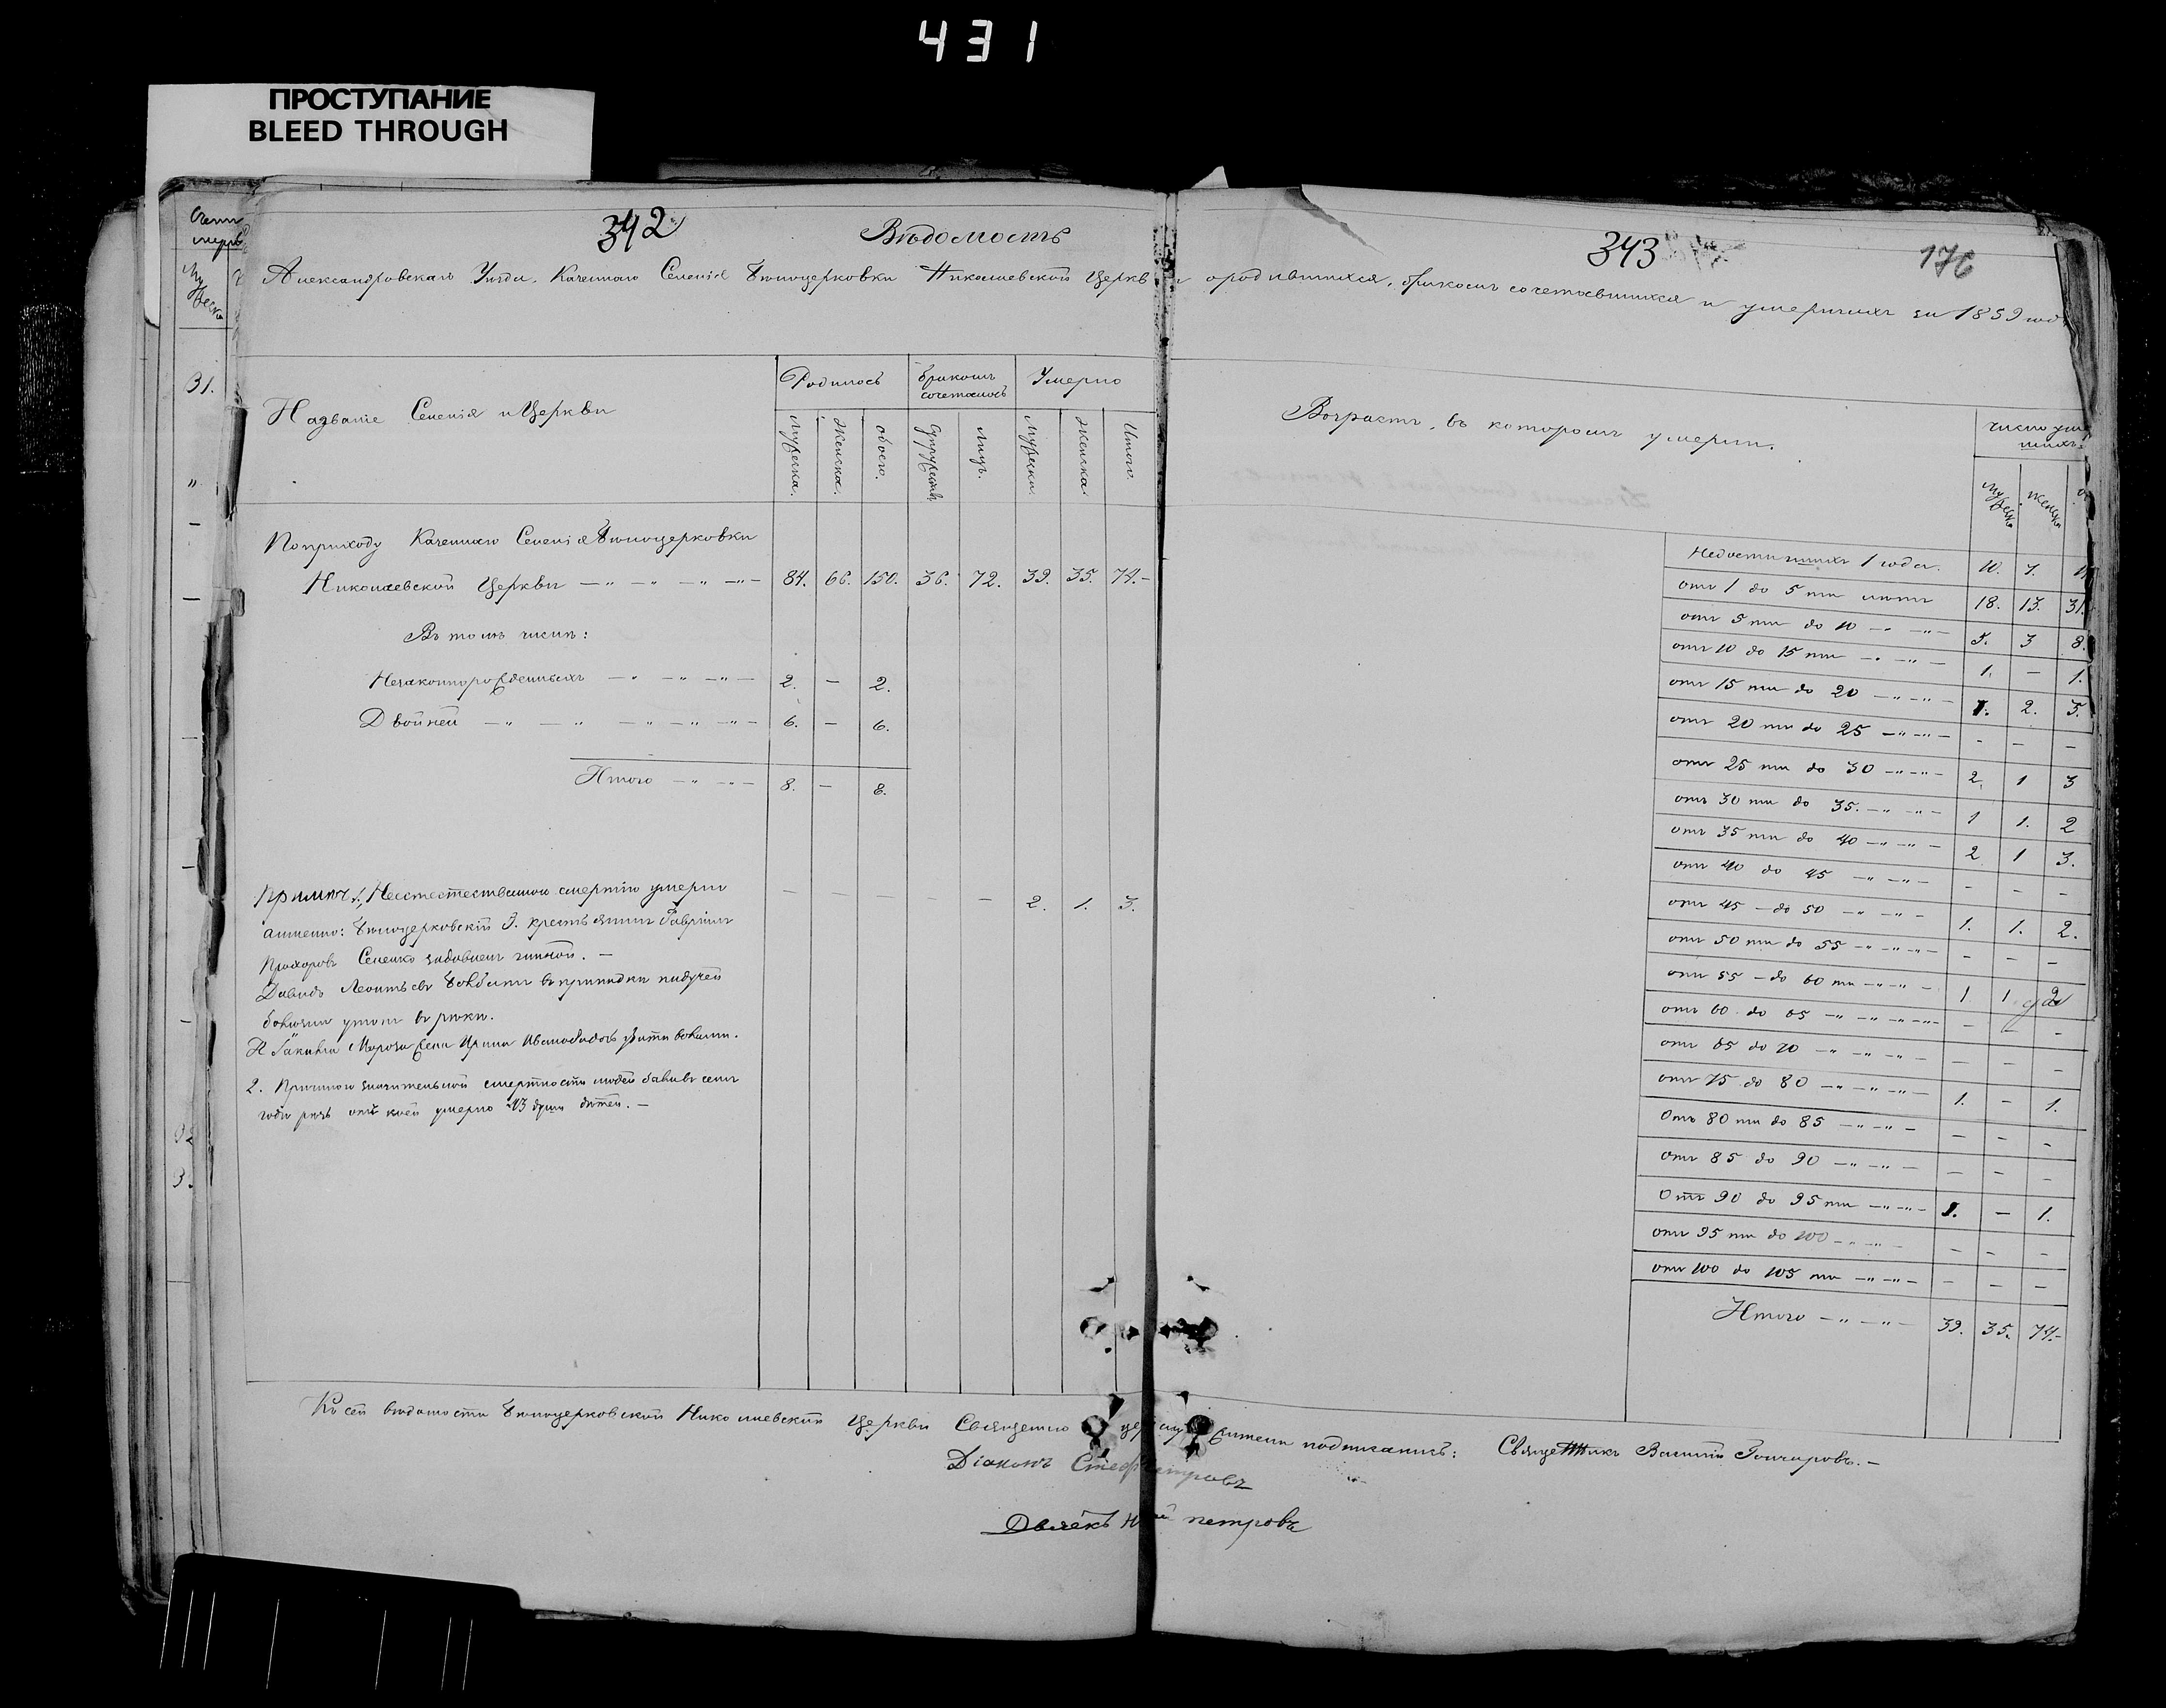 431
ПРОСТУПАНИЕ
BLEED THROUGH
342
Вѣдомость
343
176
Александровскаго Уѣзда, Казеннаго Селенія Бѣлоцерковки Николаевской Церкви о родившихся, бракомъ сочетавшихся и умершихъ за 1859 годъ
Названіе Селенія и Церкви
Родилось
Бракомъ сочеталось
Умерло
Мужеска.
Женска.
обоего.
Супружествъ
лицъ.
Мужеска.
Женска.
Итого.
Возрастъ, въ которомъ умерли.
число умер
шихъ
Мужеска
Женска
По приходу Казеннаго Селенія Бѣлоцерковки
Николаевской Церкви — „ — „ — „ — „ — 84. 66. 150. 36. 72. 39. 35. 74. –
Въ томъ числѣ:
Незаконнорожденныхъ — „ — „ — „ — 2. — 2.
Двойней — „ — „ — „ — „ — „ — 6. — 6.
Итого — „ — „ — 8. — 8.
Примѣч. 1, Неестественною смертію умерли — — — — — 2. 1. 3.
а именно: Бѣлоцерковскій Г. крестьянинъ Гавріилъ
Прохоровъ Семенко задавленъ глиной. —
Давидъ Леонтьевъ въ припадкѣ падучей
болѣзни утонъ въ рѣки.
2. Причиною значительной смертности людей бывшъ семъ
году рязь отъ коей умерло 43 душъ дѣтей. —
Недостигшихъ 1 года. 10. 7.
отъ 1 до 5 ти лѣтъ 18. 13. 31.
отъ 5 ти до 10 — „ — „ — 5. 3 8.
отъ 10 до 15 ти — „ — „ — 1. — 1.
отъ 15 ти до 20 — „ — „ — 1. 2. 3.
отъ 20 ти до 25 — „ — „ — - — —
отъ 25 ти до 30 — „ — „ — 2. 1 3
отъ 30 ти до 35. — „ — „ — 1 1. 2
отъ 35 ти до 40 — „ — „ — 2 1 3.
отъ 40 до 45 — „ — „ — - - -
отъ 45 — до 50 — „ — „ — 1. 1. 2.
отъ 50 ти до 55 — „ — „ — - - -
отъ 55 — до 60 ти — „ — „ — 1 1 2
отъ 60 до 65 — „ — „ — „ — — — -
отъ 65 до 70 — „ — „ — „ — — — -
отъ 75 до 80 — „ — „ — „ — 1. — 1.
Отъ 80 ти до 85 — „ — „ — — — -
отъ 85 до 90 — „ — „ — — — -
Отъ 90 до 95 ти — „ — „ — 1. — 1.
отъ 95 ти до 100 — „ — „ — — — -
отъ 100 до 105 ти — „ — „ — — — —
Итого — „ — „ — 39. 35. 74. –
Къ сей вѣдомости Бѣлоцерковской Николаевской Церкви Священно церковнослужители подписались: Священникъ Василій Гончаровъ. —
Діаконъ Стеф Петровъ
Дьячекъ Петровъ